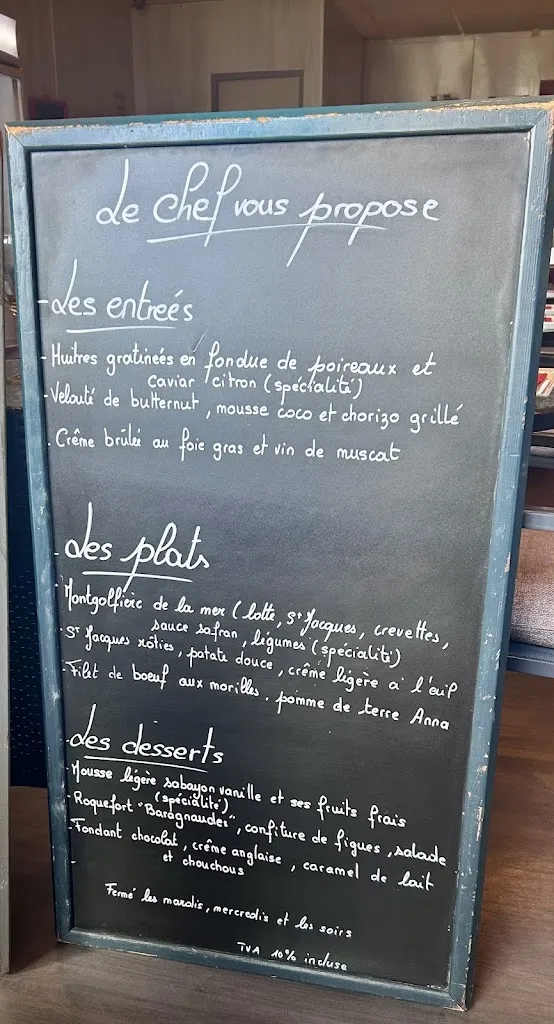 Le chef vous propose
- Les entreés
- Huîtres gratineés en fondue de poireaux et
caviar citron (spécialité)
- Velouté de butternut, mousse coco et chorizo grillé
- Crême brûlée au foie gras et vin de muscat
- Les plats
- Montgolfière de la mer (lotte, St Jacques, crevettes,
sauce safran, légumes (spécialité)
- St Jacques rôties, patate douce, crême légère à l'ail
- Filet de boeuf aux morilles. pomme de terre Anna
- Les desserts
- Mousse légère sabayon vanille et ses fruits frais
(spécialité)
- Roquefort "Baragnaudes", confiture de figues, salade
- Fondant chocolat, crême anglaise, caramel de lait
et chouchous
-
Fermé les mardis, mercredis et les soirs
TVA 10% incluse